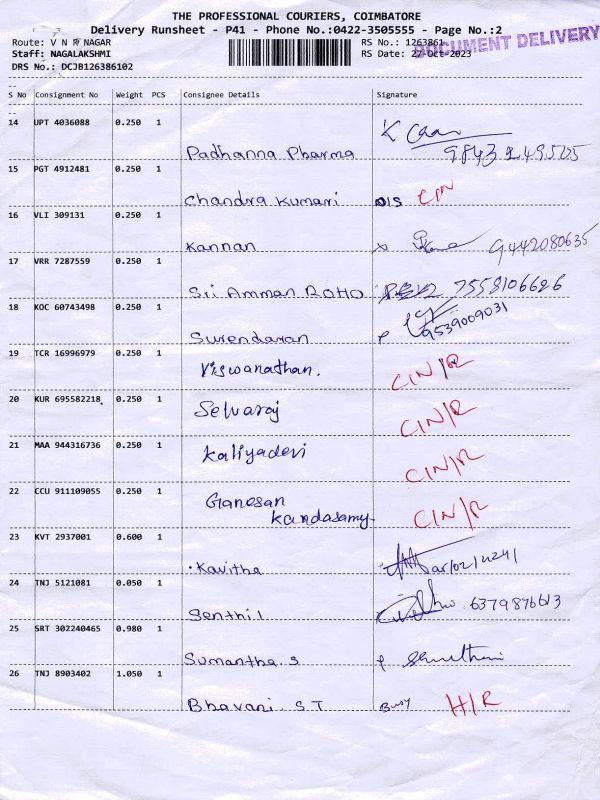 THE PROFESSIONAL COURIERS, COIMBATORE
Delivery Runsheet - P41 - Phone No.:0422-3505555 - Page No.:2
Route: V N R NAGAR
RS No.: 1263861
DOCUMENT DELIVERY
Staff: NAGALAKSHMI
RS Date: 27-Oct-2023
DRS No.: DCJB126386102
S No Consignment No Weight PCS Consignee Details Signature
14 UPT 4036088 0.250 1
Padhanna Pharma
15 PGT 4912481 0.250 1
Chandra Kumari D/S
16 VLI 309131 0.250 1
Kannan 9442080635
17 VRR 7287559 0.250 1
Sri Amman ROHO 7558106626
18 KOC 60743498 0.250 1
9539009031
Surendaran
19 TCR 16996979 0.250 1
Viswanathan. CIN/R
20 KUR 695582218 0.250 1
Selvaraj CIN/R
21 MAA 944316736 0.250 1
Kaliyadevi CIN/R
22 CCU 911109055 0.250 1
Ganesan
Kandasamy CIN/R
23 KVT 2937001 0.600 1
Kavitha
24 TNJ 5121081 0.050 1
6379876613
Senthil
25 SRT 302240465 0.980 1
Sumantha. S
26 TNJ 8903402 1.050 1
Bhavani. S T Busy H/R